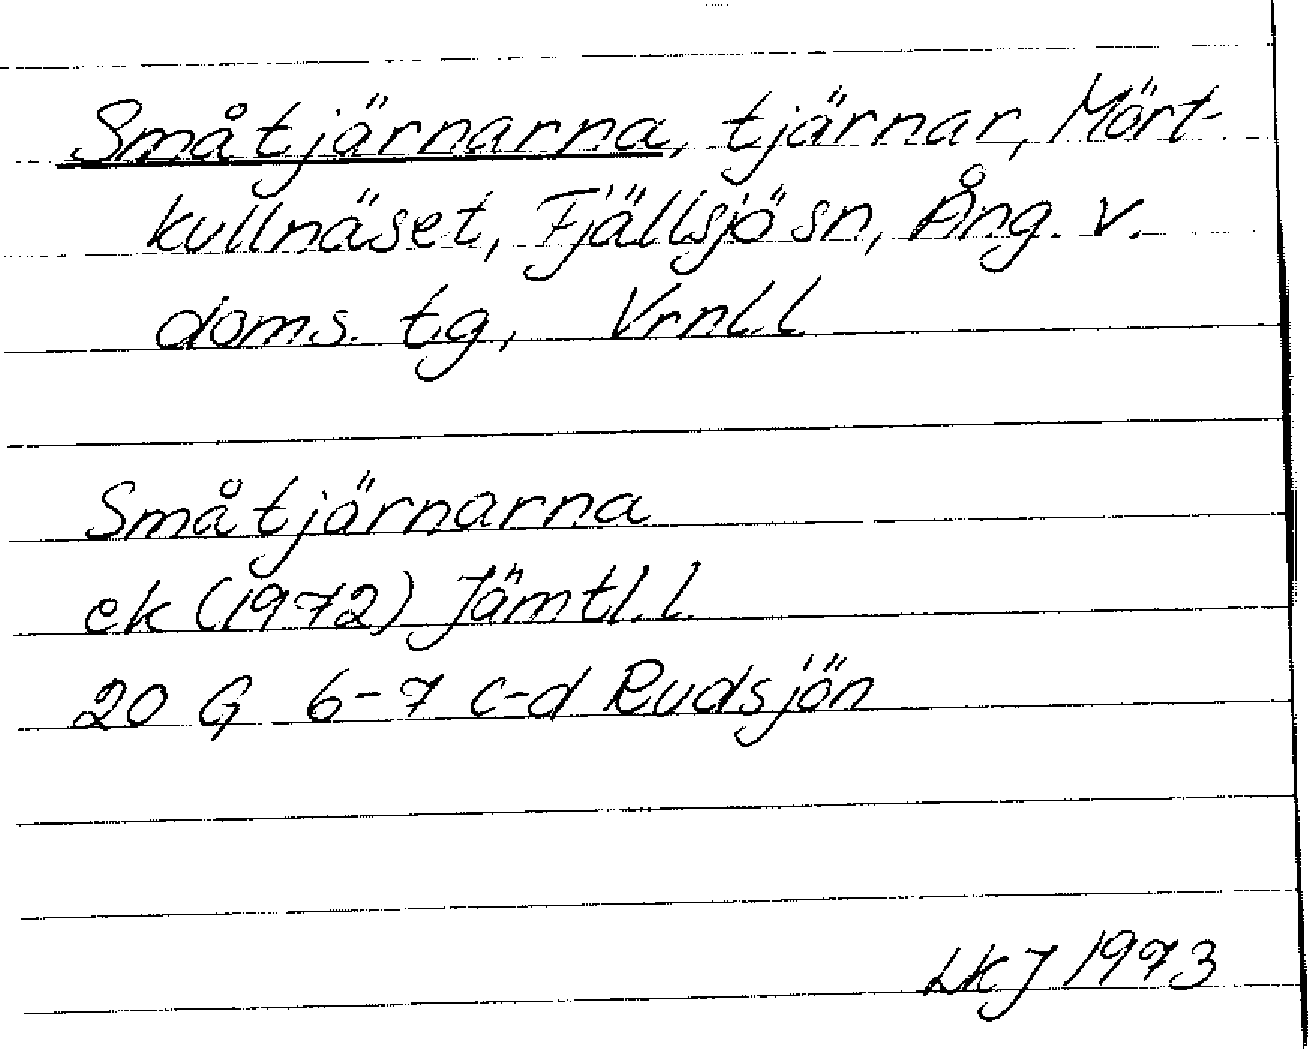 Småtjärnarna, tjärnar, Mört-
kullnäset, Fjällsjö sn, Ång. v.
doms. tg, Vrnl.l
Småtjärnarna
ek (1972) Jämtl.l.
20 G 6-7 c-d Rudsjön
LKJ 1973